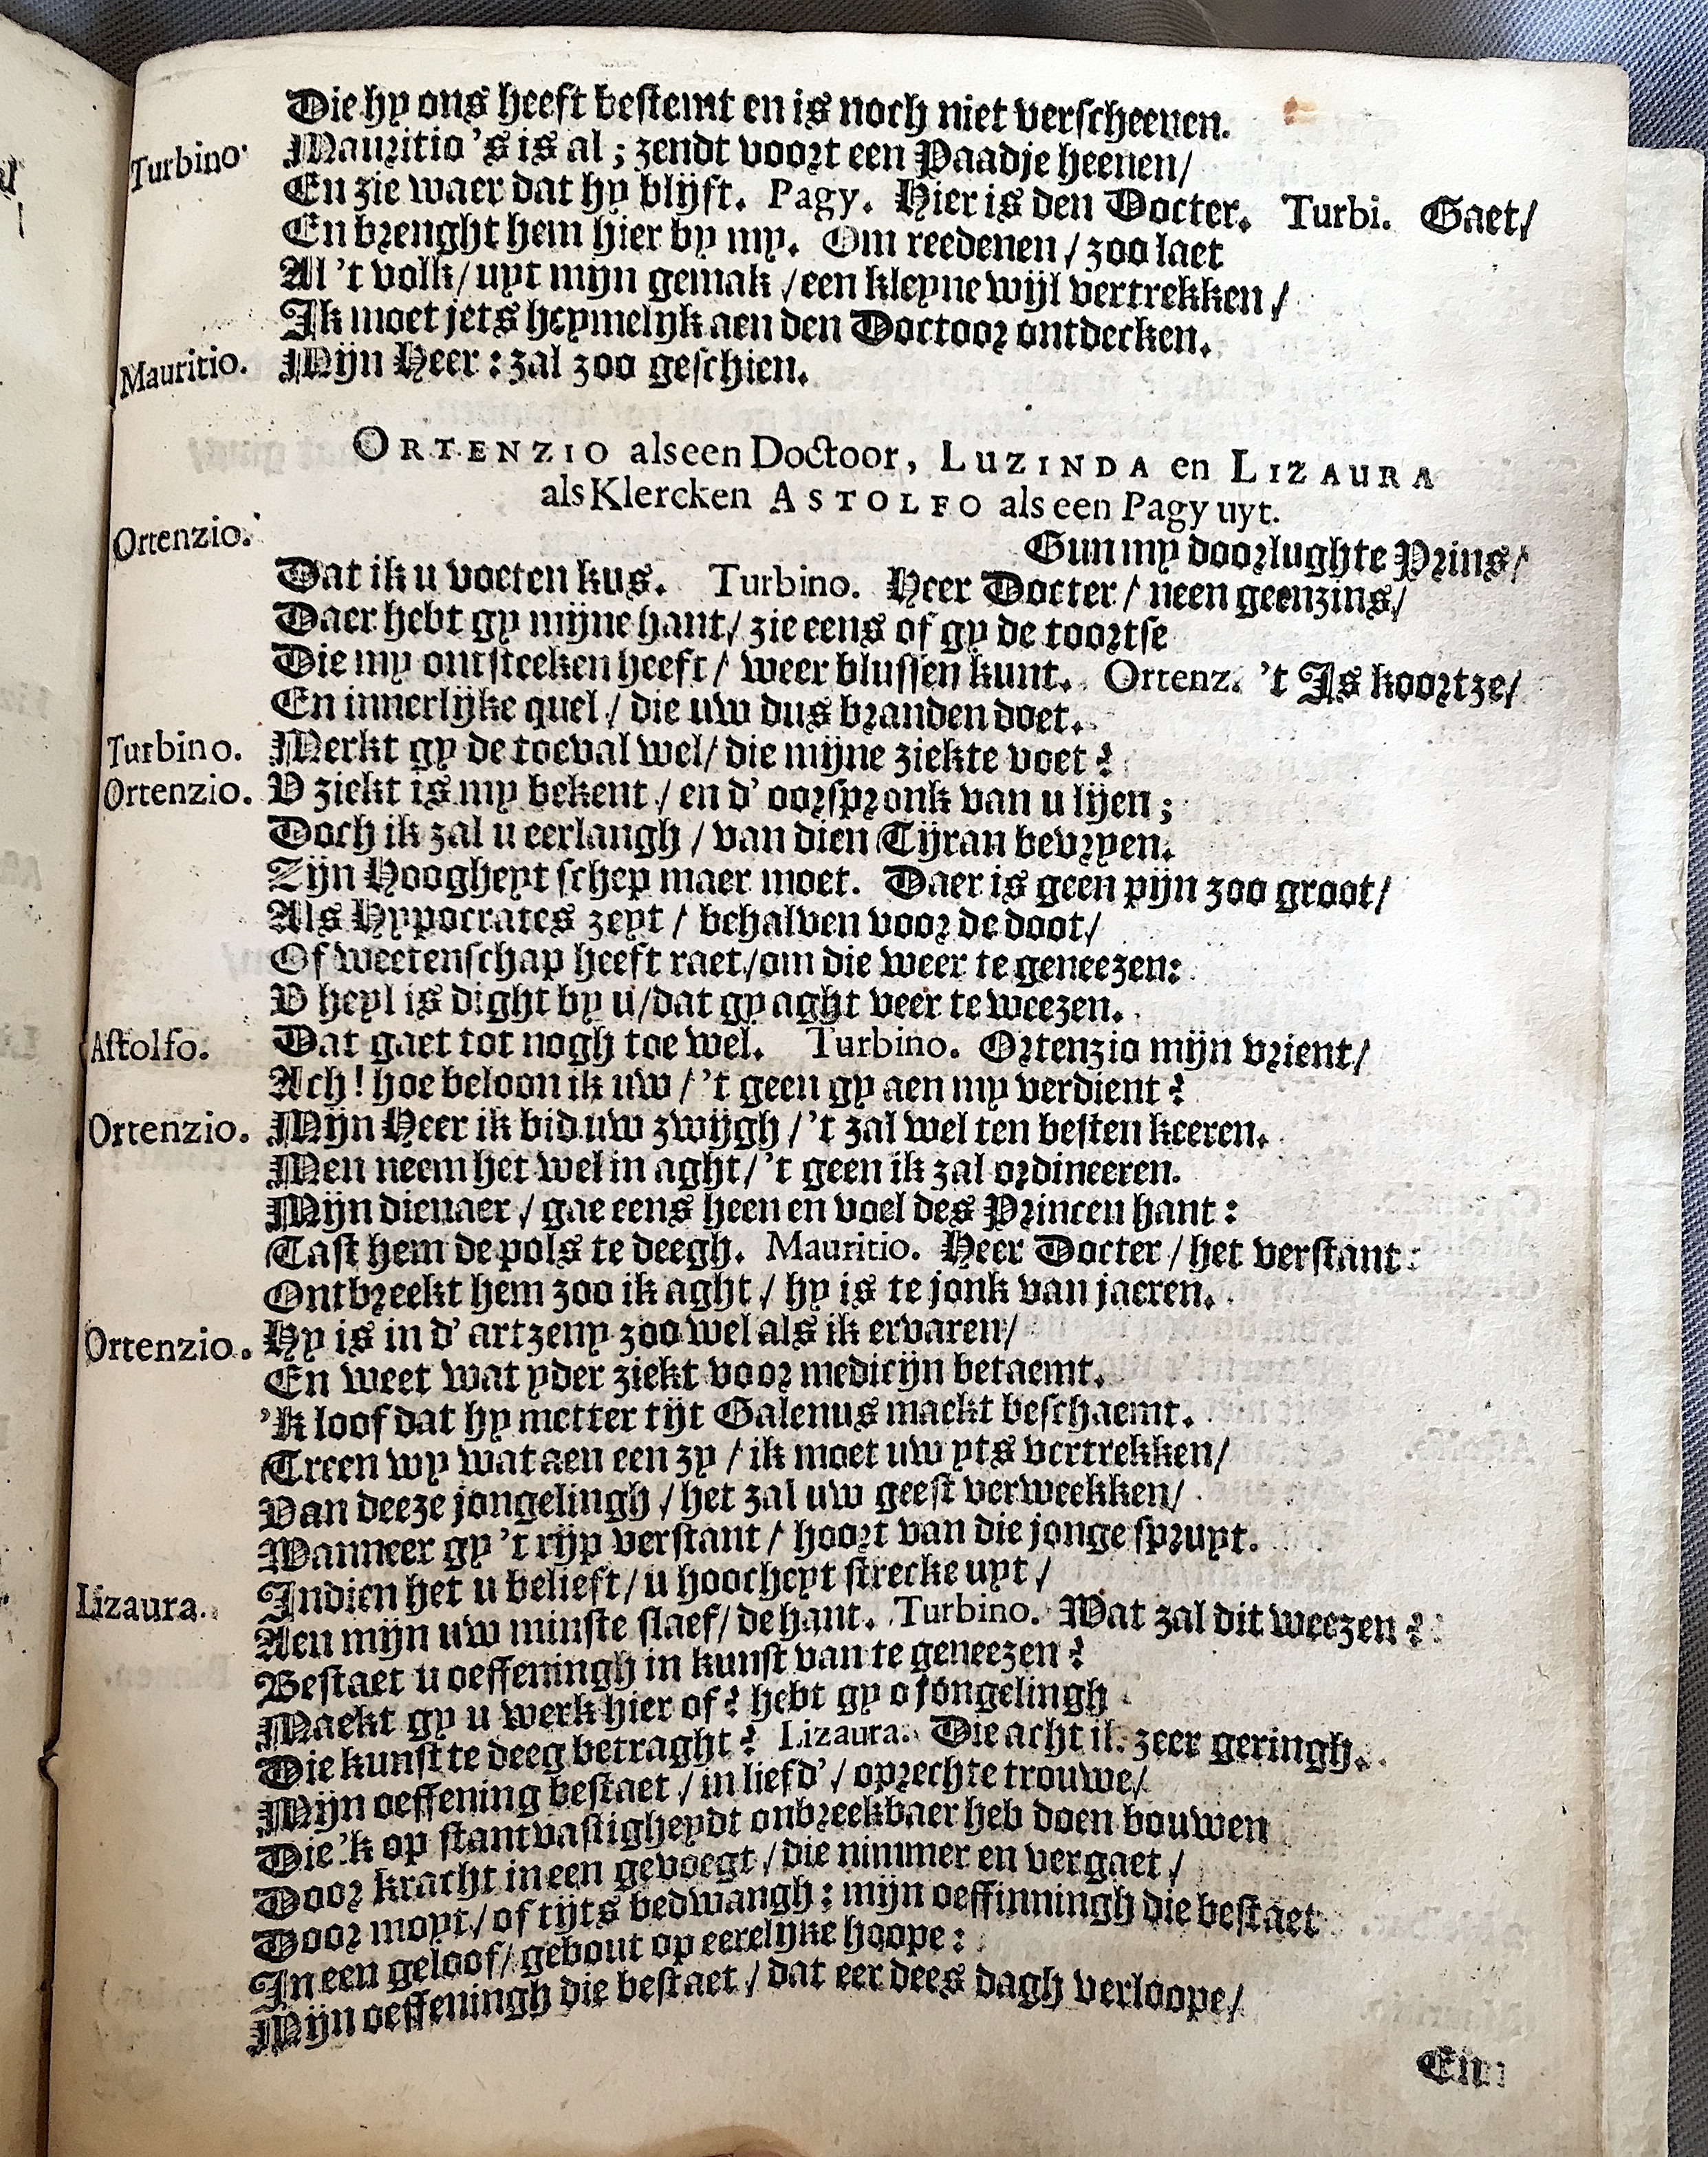 Die hy ons heeft bestemt en is noch niet verscheenen.
Turbino. Mauritio 's is al ; zendt voort een Paadje heenen/
En zie waer dat hy blijft. Pagy. Hier is den Docter. Turbi. Gaet/
En brenght hem hier by my. Om reedenen / zoo laet
Al 't volk/ uyt mijn gemak / een kleyne wijl vertrekken /
Ik moet jets heymelijk aen den Doctoor ontdecken.
Mauritio. Mijn Heer : zal zoo geschien.
ORTENZIO als een Doctoor, LUZINDA en LIZAURA
als Klercken ASTOLFO als een Pagy uyt.
Ortenzio. Gun my doorlughte Prins/
Dat ik u voeten kus. Turbino. Heer Docter / neen geenzins/
Daer hebt gy mijne hant/ zie eens of gy de toortse
Die my ontsteeken heeft / weer blussen kunt. Ortenz. 't Is koortze/
En innerlijke quel / die uw dus branden doet.
Turbino. Merkt gy de toeval wel/ die mijne ziekte voet ?
Ortenzio. V ziekt is my bekent / en d' oorspronk van u lijen ;
Doch ik zal u eerlangh / van dien Tijran bevryen.
Zijn Hoogheyt schep maer moet. Daer is geen pijn zoo groot/
Als Hypocrates zeyt / behalven voor de doot/
Of weetenschap heeft raet/om die weer te geneezen:
V heyl is dight by u/dat gy aght veer te weezen.
Astolfo. Dat gaet tot nogh toe wel. Turbino. Ortenzio mijn vrient/
Ach! hoe beloon ik uw / 't geen gy aen my verdient ?
Ortenzio. Mijn Heer ik bid uw zwijgh / 't zal wel ten besten keeren.
Men neem het wel in aght/ 't geen ik zal ordineeren.
Mijn dienaer / gae eens heen en voel des Princen hant :
Tast hem de pols te deegh. Mauritio. Heer Docter / het verstant :
Ontbreekt hem zoo ik aght / hy is te jonk van jaeren.
Ortenzio. Hy is in d' artzeny zoo wel als ik ervaren/
En weet wat yder ziekt voor medicijn betaemt.
'k loof dat hy metter tijt Galenus maekt beschaemt.
Treen wy wat aen een zy / ik moet uw yts vertrekken/
Van deeze jongelingh / het zal uw geest verweekken/
Wanneer gy 't rijp verstant / hoort van die jonge spruyt.
Lizaura. Indien het u belieft/ u hoocheyt strecke uyt /
Aen mijn uw minste slaef/ de hant. Turbino. Wat zal dit weezen ?
Bestaet u oeffeningh in kunst van te geneezen ?
Maekt gy u werk hier of ? hebt gy o jongelingh
Die kunst te deeg betraght ? Lizaura. Die acht ik zeer geringh.
Mijn oeffening bestaet / in liefd' / oprechte trouwe/
Die 'k op stantvastigheydt onbreekbaer heb doen bouwen
Door kracht in een gevoegt / die nimmer en vergaet /
Door moyt / of tijts bedwangh ; mijn oeffinningh die bestaet
In een geloof/ gebout op eerelijke hoope :
Mijn oeffeningh die bestaet / dat eer dees dagh verloope/